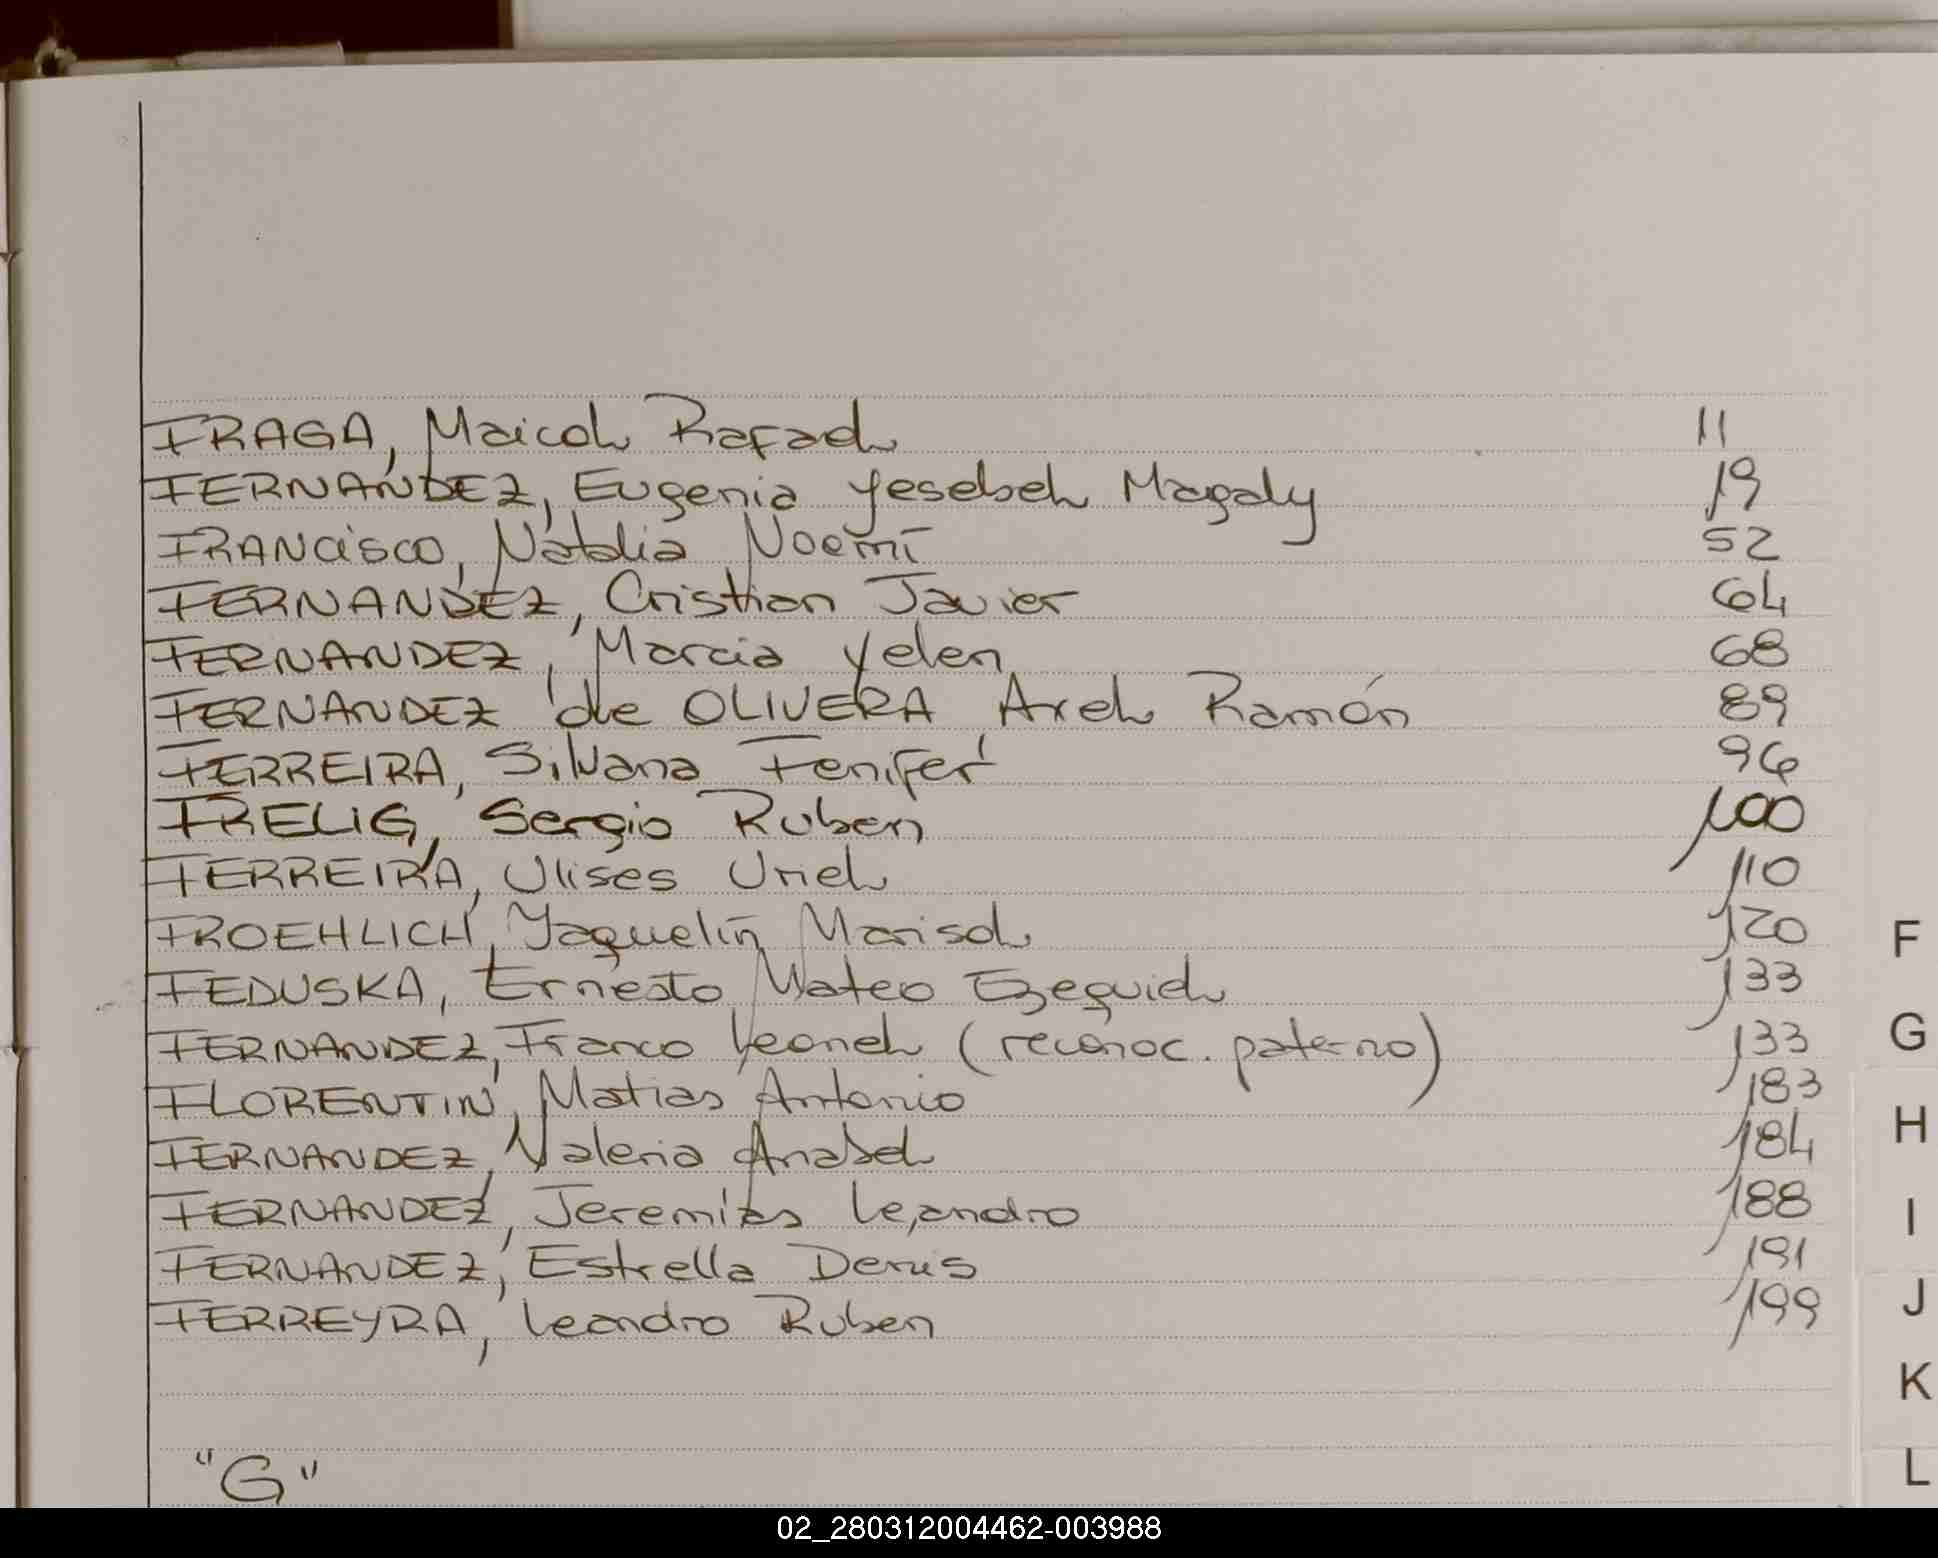 FRAGA, Maicol Rafael 11
FERNANDEZ, Eugenia Yesebel Magaly 19
FRANCISCO, Natalia Noemí 52
FERNANDEZ, Cristian Javier 64
FERNANDEZ, Marcia Yelen 68
FERNANDEZ de OLIVERA Axel Ramón 89
FERREIRA, Silvana Fenifer 96
FRELIG, Sergio Ruben 100
FERREIRA, Ulises Uriel 110
FROEHLICH, Yaquelín Marisol 120
FEDUSKA, Ernesto Mateo Ezequiel 133
FERNANDEZ, Franco Leonel (reconoc. paterno) 133
FLORENTIN, Matias Antonio 183
FERNANDEZ, Valeria Anabel 184
FERNANDEZ, Jeremías Leandro 188
FERNANDEZ, Estrella Denis 191
FERREYRA, Leandro Ruben 199
"G"
F
G
H
I
J
K
L
02_280312004462-003988